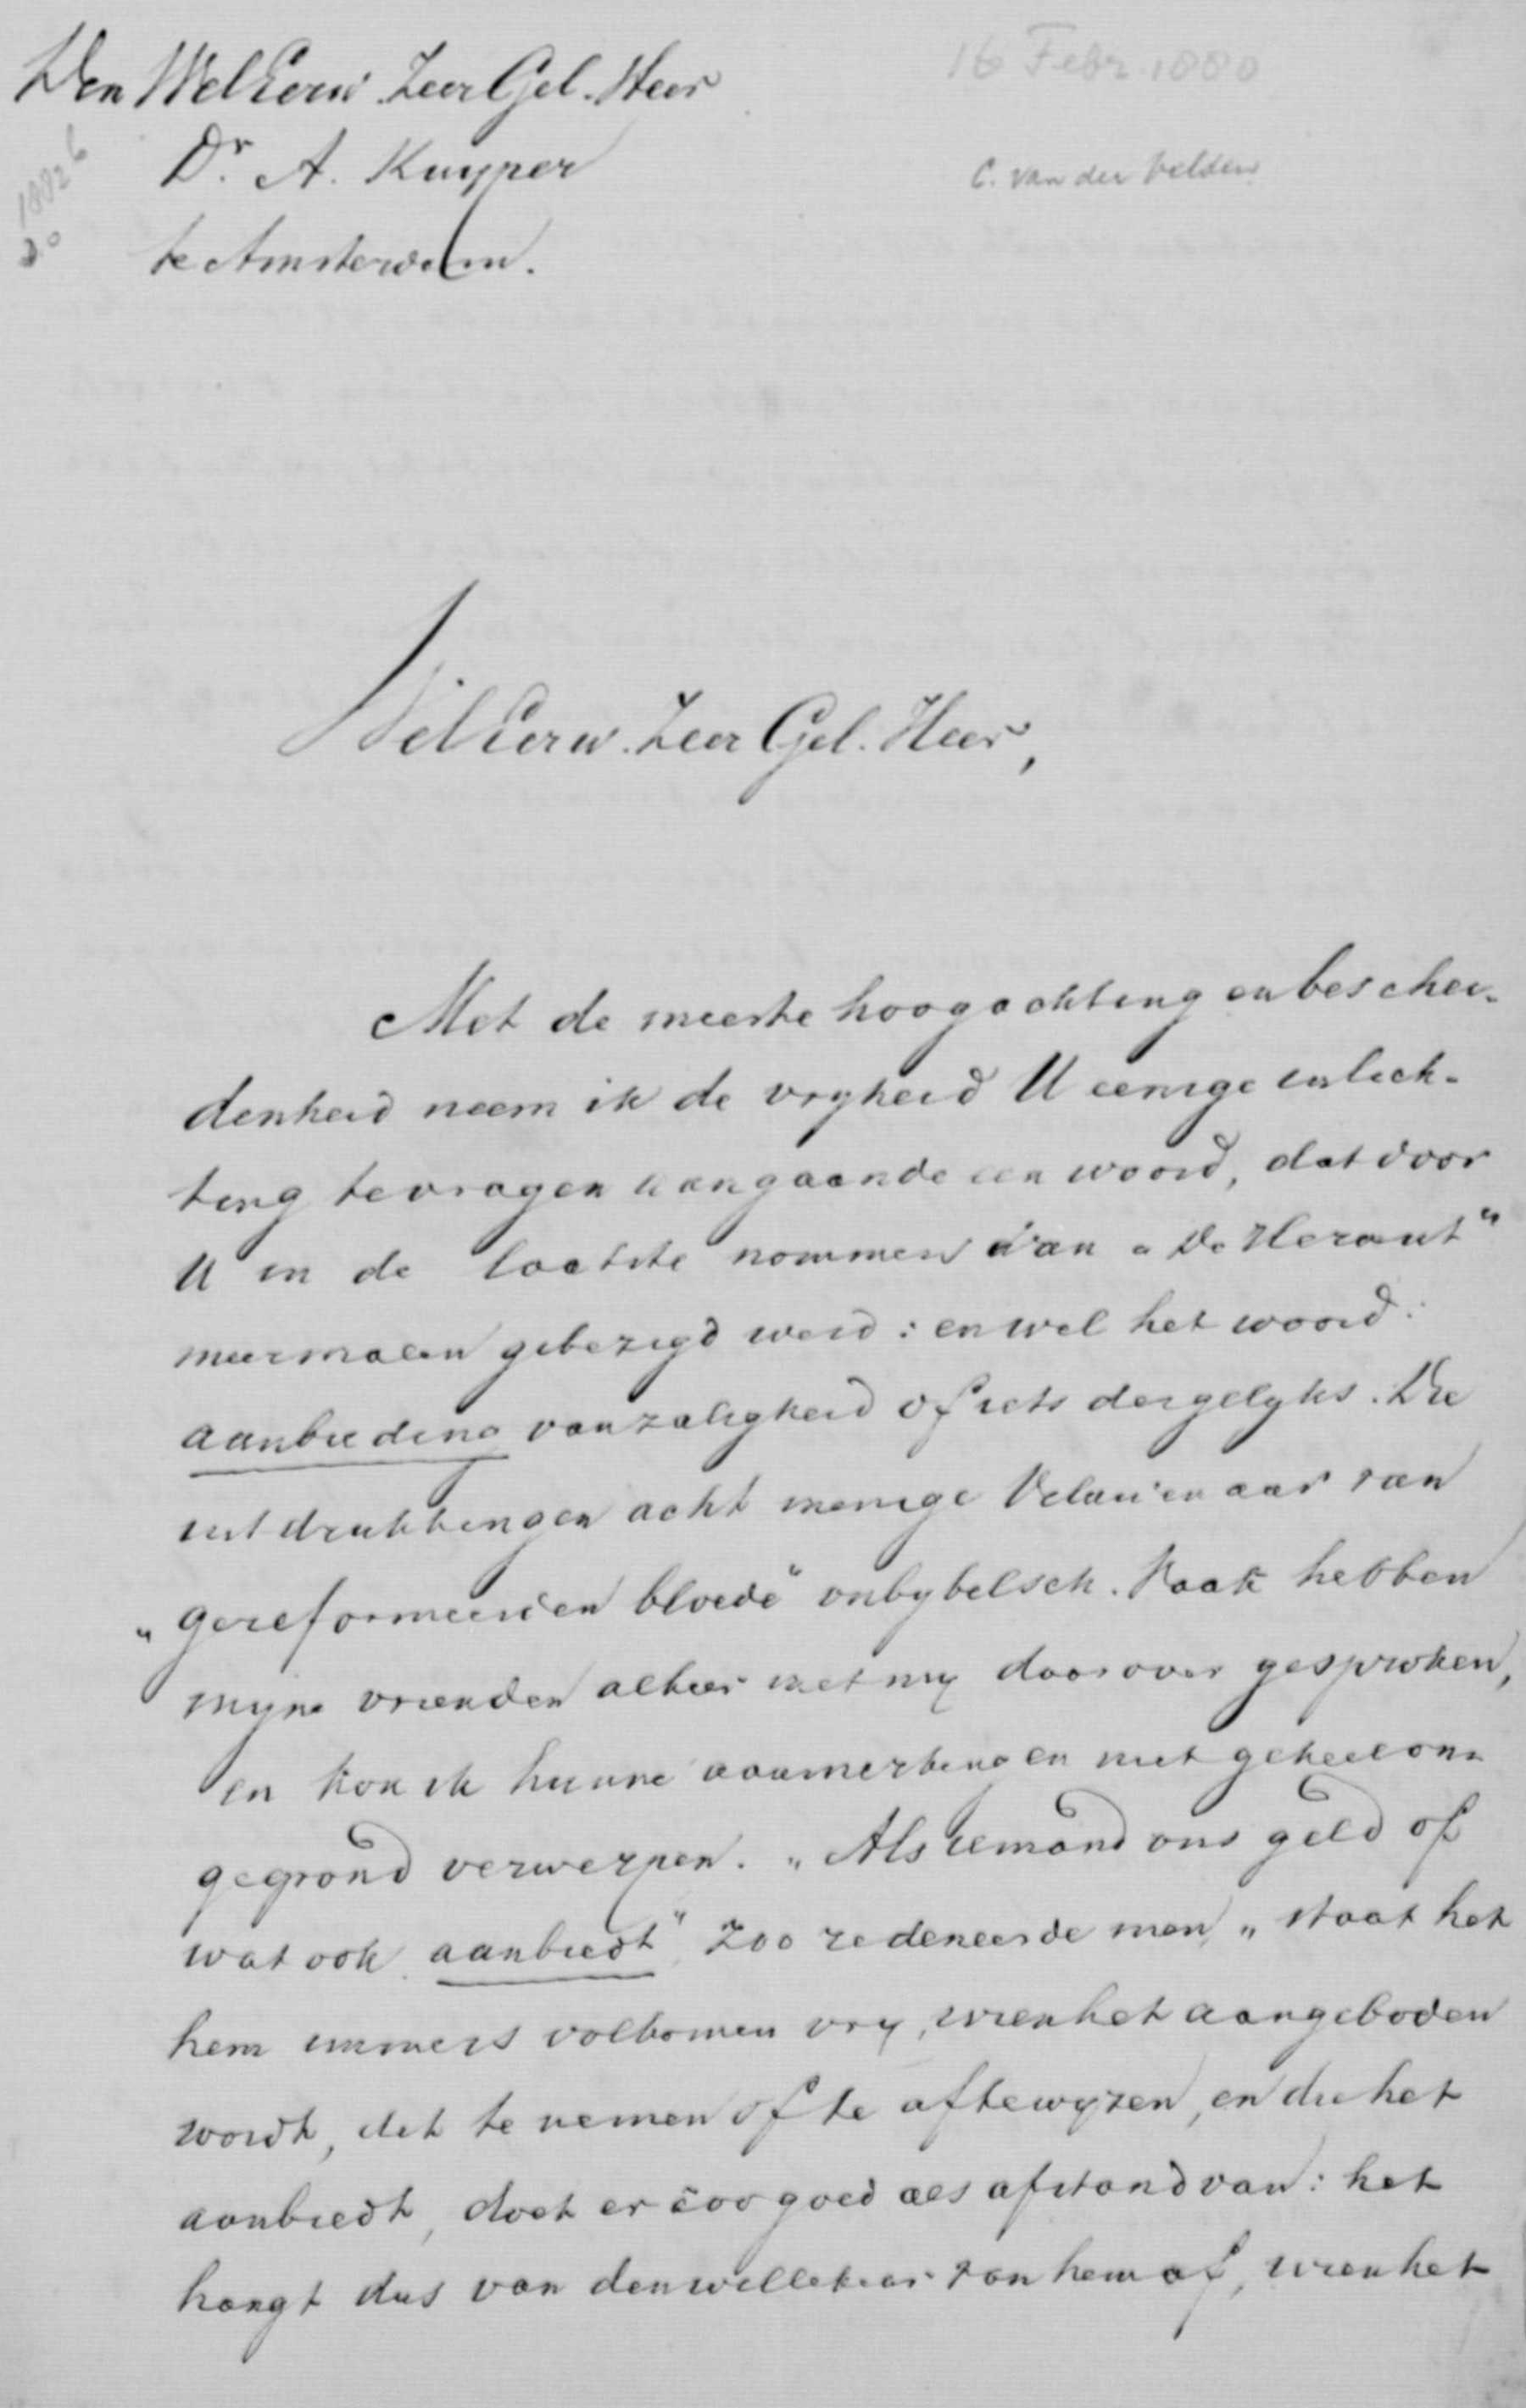 16 Febr. 1880
Den WelEerw. Zeer Gel. Heer
Dr. A. Kuyper
C. van der Velden
te Amsterdam.
WelEerw. Zeer Gel. Heer,
Met de meeste hoogachting en beschei-
denheid neem ik de vryheid U eenige inlich-
ting te vragen aangaande een woord, dat door
U in de laatste nommers van „De Heraut"
meermalen gebezigd werd: en wel het woord:
aanbieding van zaligheid of iets dergelyks. Die
uitdrukkingen acht menige Veluwenaar van
„gereformeerden bloede" onbybelsch. Vaak hebben
myne vrienden alhier met my daarover gesproken,
en kon ik hunne aanmerkingen niet geheel on-
gegrond verwerpen. „Als iemand ons geld of
wat ook aanbiedt", zoo redeneerde men, „staat het
hem immers volkomen vry, wien het aangeboden
wordt, dit te nemen of te aftewyzen, en die het
aanbiedt, doet er zoo goed als afstand van: het
hangt dus van den willekeur van hem af, wien het